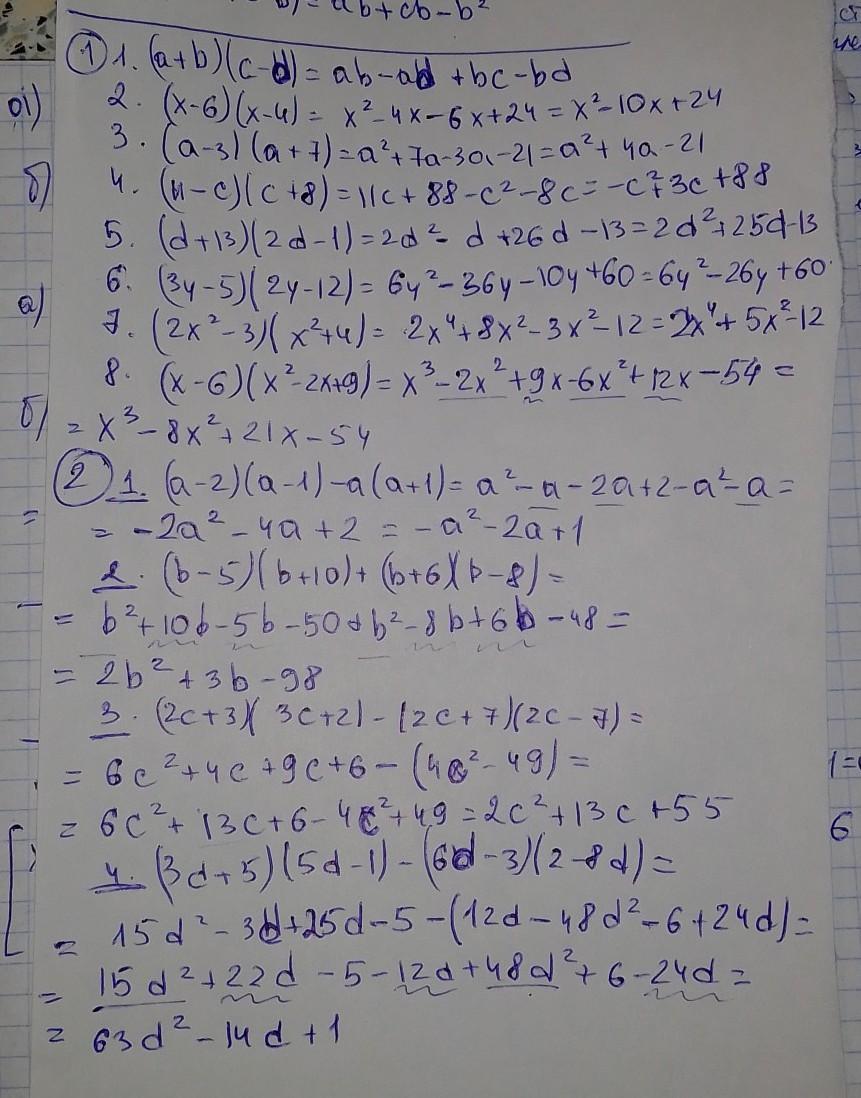 = ab + cb - b²
① 1. (a+b)(c-d) = ab - ad + bc - bd
a) 2. (x-6)(x-4) = x² - 4x - 6x + 24 = x² - 10x + 24
3. (a-3)(a+7) = a² + 7a - 3a - 21 = a² + 4a - 21
б) 4. (11-c)(c+8) = 11c + 88 - c² - 8c = -c² + 3c + 88
5. (d+13)(2d-1) = 2d² - d + 26d - 13 = 2d² + 25d - 13
6. (3y-5)(2y-12) = 6y² - 36y - 10y + 60 = 6y² - 26y + 60
a) 7. (2x²-3)(x²+4) = 2x⁴ + 8x² - 3x² - 12 = 2x⁴ + 5x² - 12
8. (x-6)(x²-2x+9) = x³ - 2x² + 9x - 6x² + 12x - 54 =
б) = x³ - 8x² + 21x - 54
② 1. (a-2)(a-1) - a(a+1) = a² - a - 2a + 2 - a² - a =
= -2a² - 4a + 2 = -a² - 2a + 1
2. (b-5)(b+10) + (b+6)(b-8) =
= b² + 10b - 5b - 50 + b² - 8b + 6b - 48 =
= 2b² + 3b - 98
3. (2c+3)(3c+2) - (2c+7)(2c-7) =
= 6c² + 4c + 9c + 6 - (4c² - 49) =
= 6c² + 13c + 6 - 4c² + 49 = 2c² + 13c + 55
6
4. (3d+5)(5d-1) - (6d-3)(2-8d) =
= 15d² - 3d + 25d - 5 - (12d - 48d² - 6 + 24d) =
= 15d² + 22d - 5 - 12d + 48d² + 6 - 24d =
= 63d² - 14d + 1